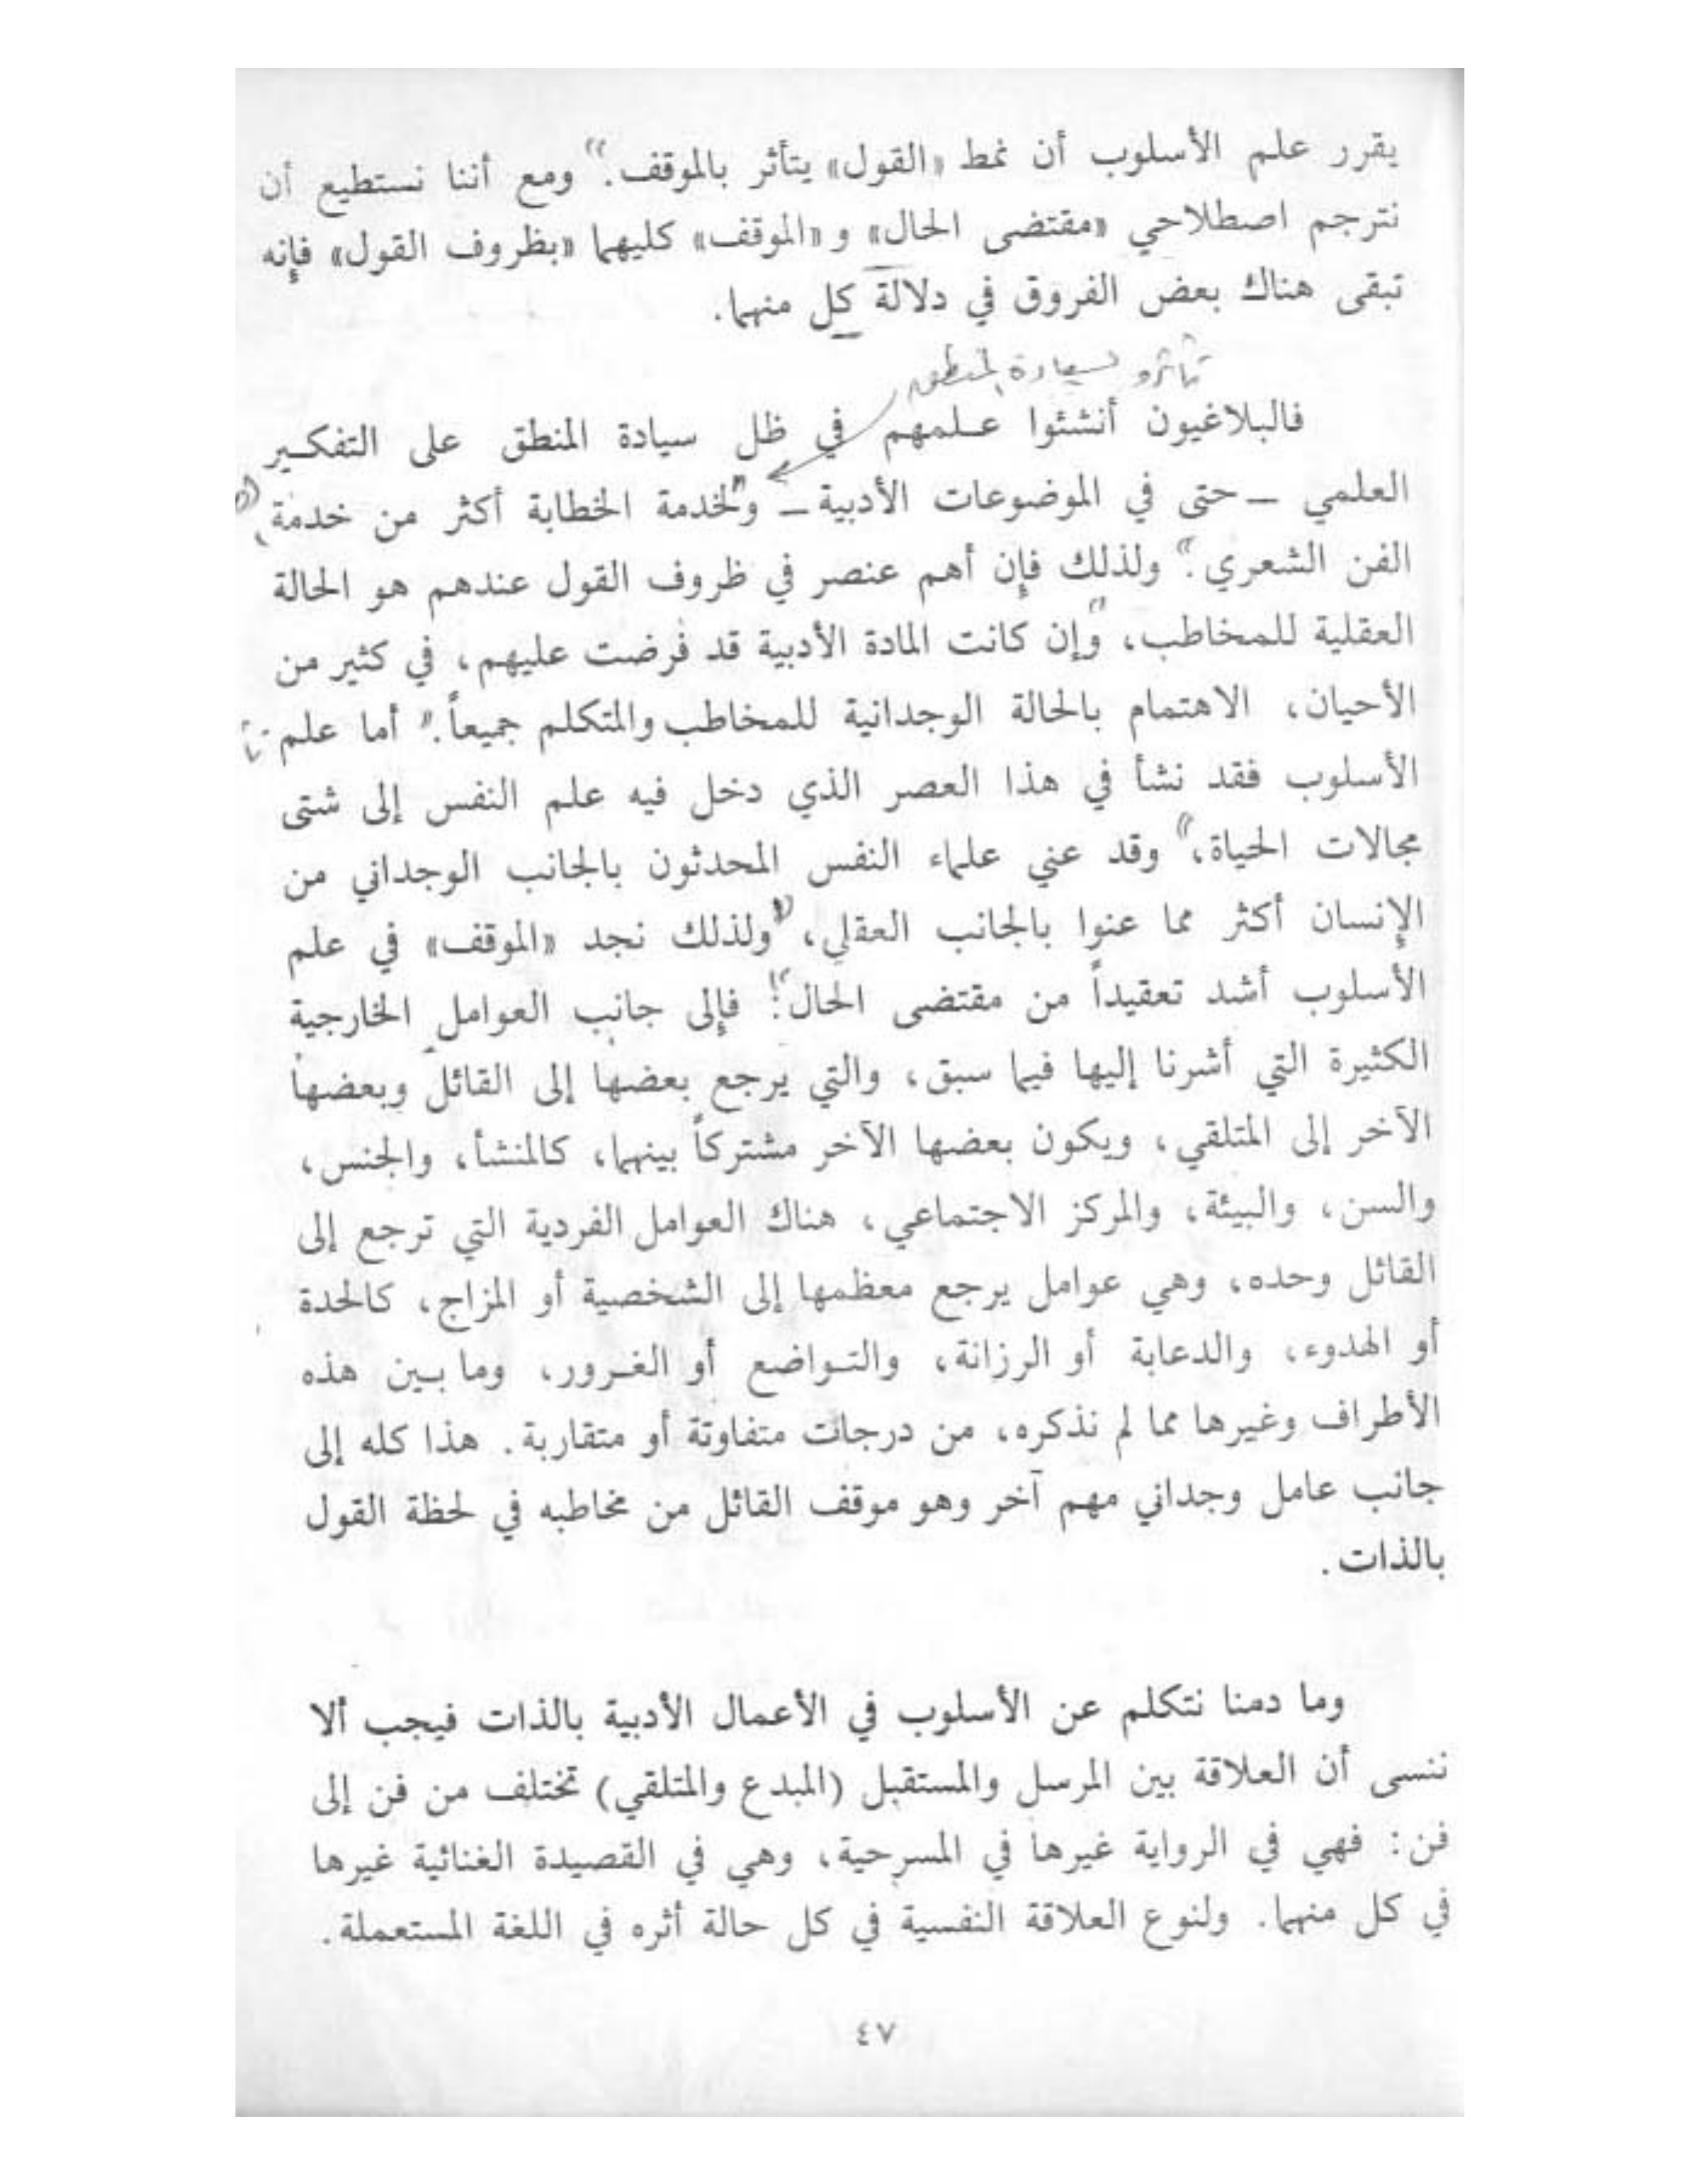 يقرر علم الأسلوب أن نمط «القول» يتأثر بالموقف. ومع أننا نستطيع أن
نترجم اصطلاحي «مقتضى الحال» و «الموقف» كليهما «بظروف القول» فإنه
تبقى هناك بعض الفروق في دلالة كل منهما.
فالبلاغيون أنشئوا علمهم في ظل سيادة المنطق على التفكير
العلمي – حتى في الموضوعات الأدبية – ولخدمة الخطابة أكثر من خدمة
الفن الشعري. ولذلك فإن أهم عنصر في ظروف القول عندهم هو الحالة
العقلية للمخاطب، وإن كانت المادة الأدبية قد فرضت عليهم، في كثير من
الأحيان، الاهتمام بالحالة الوجدانية للمخاطب والمتكلم جميعاً. أما علم
الأسلوب فقد نشأ في هذا العصر الذي دخل فيه علم النفس إلى شتى
مجالات الحياة، وقد عني علماء النفس المحدثون بالجانب الوجداني من
الإنسان أكثر مما عنوا بالجانب العقلي، ولذلك نجد «الموقف» في علم
الأسلوب أشد تعقيداً من مقتضى الحال: فإلى جانب العوامل الخارجية
الكثيرة التي أشرنا إليها فيما سبق، والتي يرجع بعضها إلى القائل وبعضها
الآخر إلى المتلقي، ويكون بعضها الآخر مشتركاً بينهما، كالمنشأ، والجنس،
والسن، والبيئة، والمركز الاجتماعي، هناك العوامل الفردية التي ترجع إلى
القائل وحده، وهي عوامل يرجع معظمها إلى الشخصية أو المزاج، كالحدة
أو الهدوء، والدعابة أو الرزانة، والتواضع أو الغرور، وما بين هذه
الأطراف وغيرها مما لم نذكره، من درجات متفاوتة أو متقاربة. هذا كله إلى
جانب عامل وجداني مهم آخر وهو موقف القائل من مخاطبه في لحظة القول
بالذات.
وما دمنا نتكلم عن الأسلوب في الأعمال الأدبية بالذات فيجب ألا
ننسى أن العلاقة بين المرسل والمستقبل (المبدع والمتلقي) تختلف من فن إلى
فن: فهي في الرواية غيرها في المسرحية، وهي في القصيدة الغنائية غيرها
في كل منهما. ولنوع العلاقة النفسية في كل حالة أثره في اللغة المستعملة.
٤٧